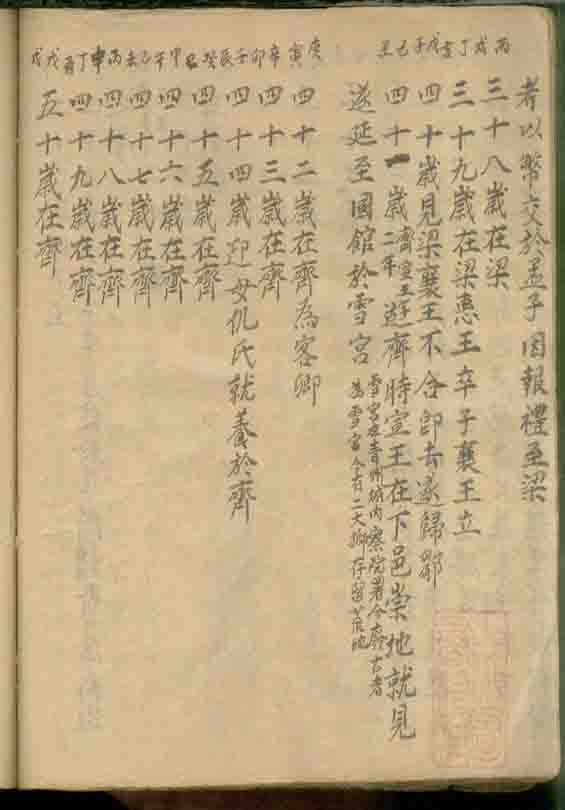 丙戌丁亥戊子己丑
庚寅辛卯壬辰癸巳甲午乙未丙申丁酉戊戌
者以幣交於孟子因報禮至梁
三十八歲在梁
三十九歲在梁惠王卒子襄王立
四十歲見梁襄王不合即去遂歸鄒
四十一歲齊宣王二年遊齊時宣王在下邑崇地就見
遂延至國館於雪宮雪宮在青州城内察院署今廢古者為雪宮今有二大柳存留
四十二歲在齊為客卿
四十三歲在齊
四十四歲迎母仉氏就養於齊
四十五歲在齊
四十六歲在齊
四十七歲在齊
四十八歲在齊
四十九歲在齊
五十歲在齊